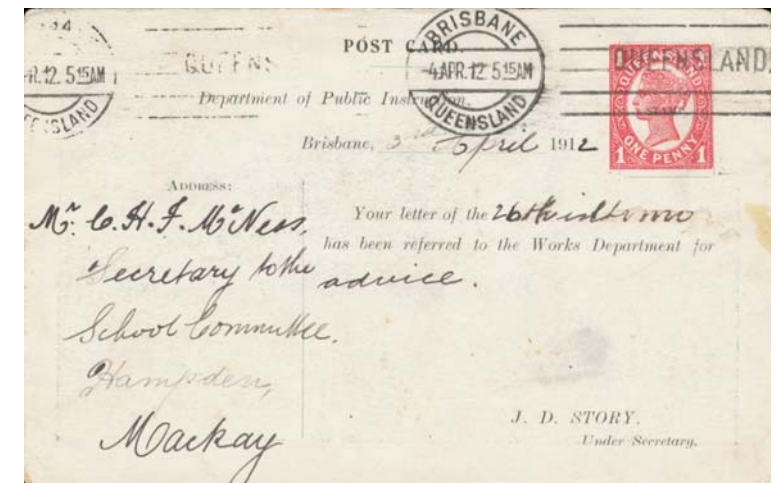 POST CARD.
BRISBANE
4 APR. 12 5 15 AM
QUEENSLAND
R. 12. 5 15 AM
QUEENS
QUEENSLAND.
QUEENSLAND
ONE PENNY
1 1
Department of Public Instruction,
Brisbane, 3rd April 1912
ADDRESS:
Mr. C. H. F. McNess,
Secretary to the
School Committee.
Hampden,
Mackay
Your letter of the 26th
has been referred to the Works Department for
advice.
J. D. STORY.
Under Secretary.